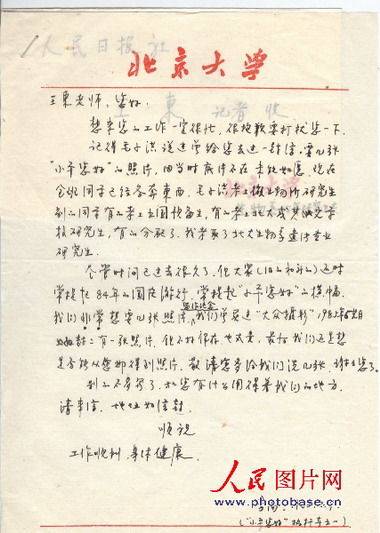 人民日报社
北京大学
王东 记者 收
王东老师,您好:
想来您的工作一定很忙,很抱歉要打扰您一下
记得毛小洪说过曾给您去过一封信,要几张
"小平您好"的照片,因当时底片不在未能如愿,现在
全班同学已经各奔东西,毛小洪考上微生物所研究生
别的同学有的考上出国预备生,有的考上北大或其它院
校研究生,有的分配了,我考取了北大生物系遗传专业
研究生。
尽管时间已过去很久了,但大家(旧的和新的)还时
常提起84年的国庆游行,常提起"小平您好"的横幅
我们非常想要几张照片,留作纪念 我们曾见过"大众摄影"
封二有一张照片,但不好保存
是否能从您那得到照片,敬请您给我们洗几张,谢谢您了。
别的不多写了,如您有什么用得着我们的地方
请来信,地址如信封
顺祝
工作顺利,身体健康
("小平您好"执行者之一)
人民图片
www.photobase.cn